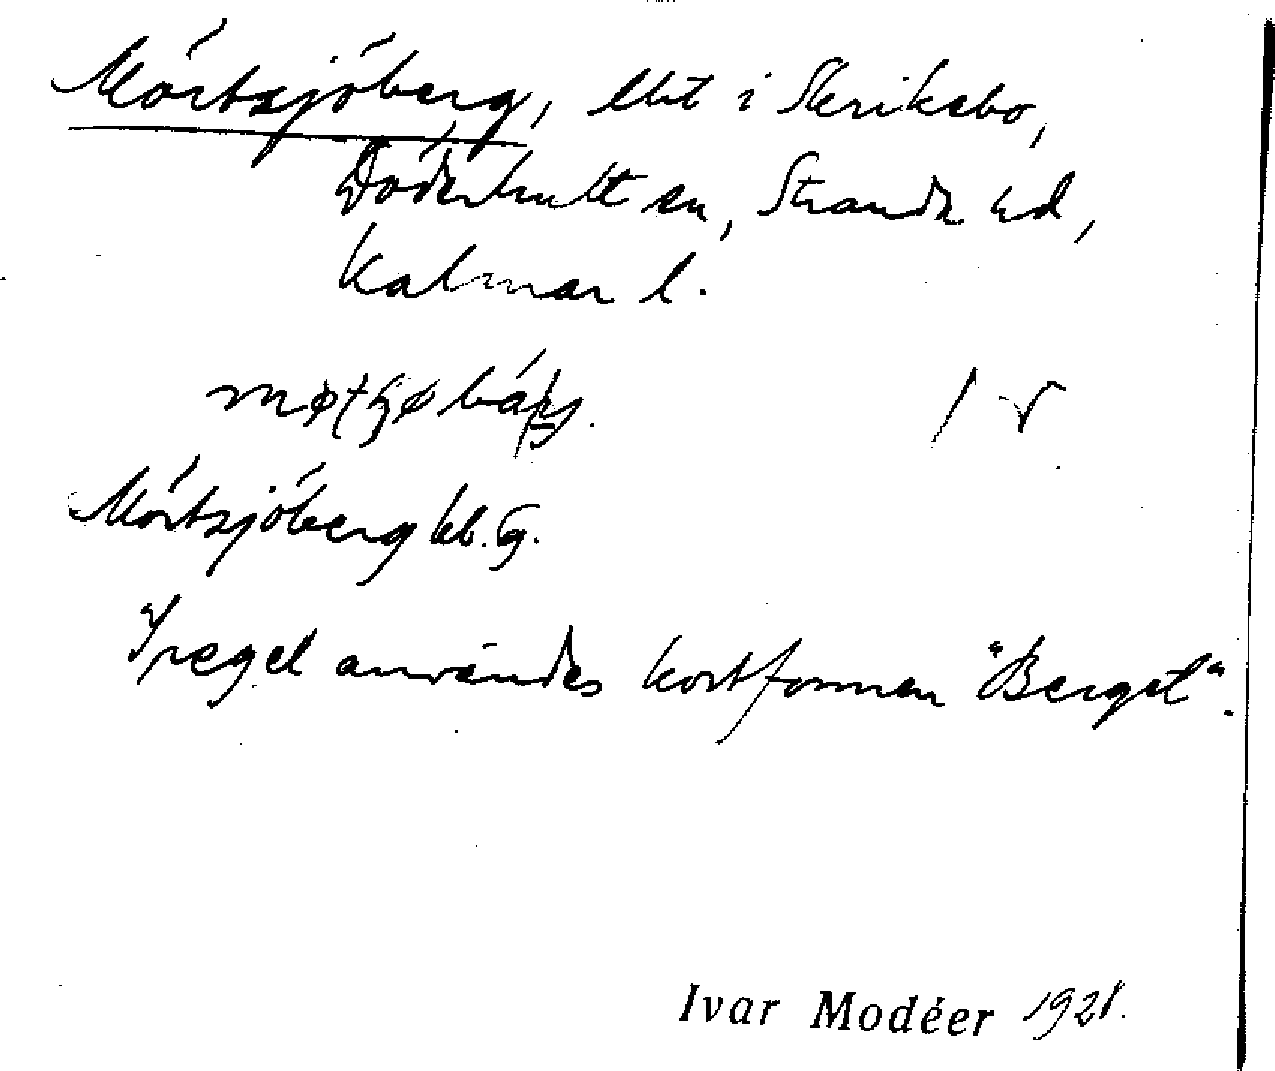 Mörtsjöberg, lht i Skriksbo,
Döderhult sn, Stranda hd,
Kalmar l.
Mörtsjöberg kb. G.
I regel användes kortformen "Berget".
Ivar Modéer 1921.